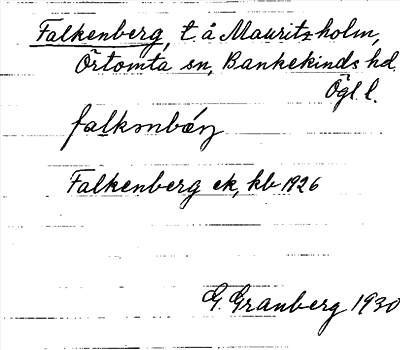 Falkenberg, t. å Mauritzholm,
Örtomta sn, Bankekinds hd.
Ögl l.
Falkenberg ek, kb 1926
G. Granberg 1930